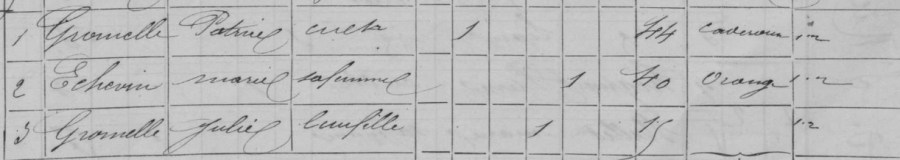 1 Gromelle Patrice cult 1 44 Caderousse 1-2
2 Echevin marie sa femme 1 40 Orange 1-2
3 Gromelle Julie leur fille 1 15 1-2